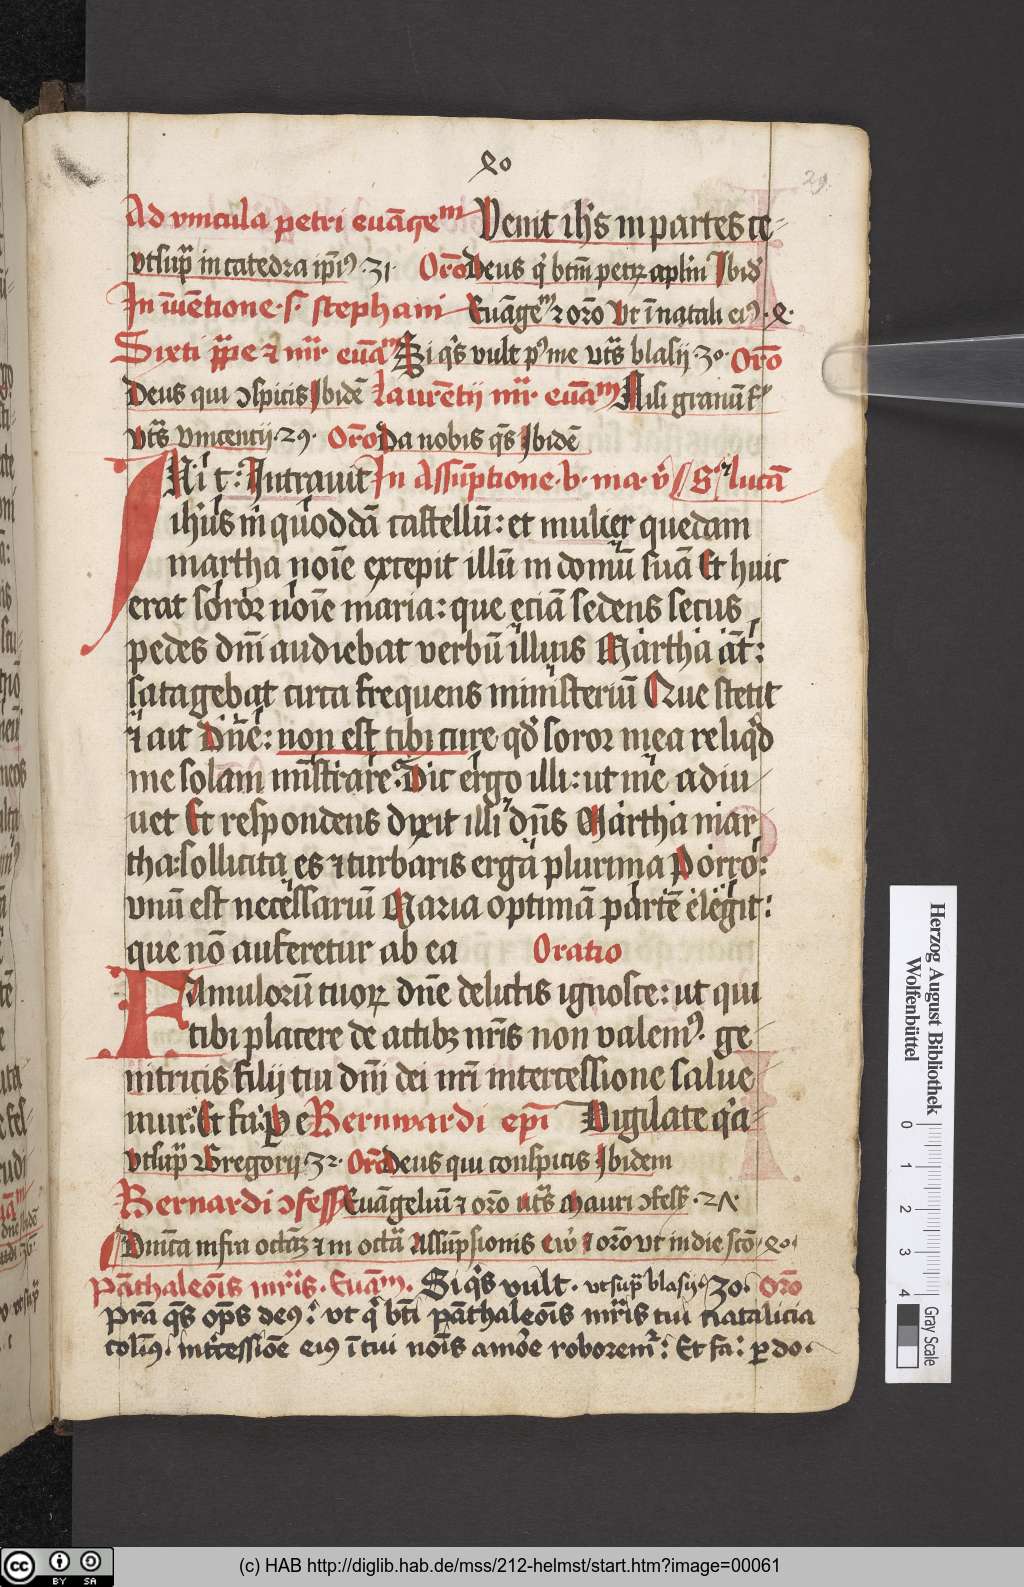 40
29
Ad vincula petri euāgeᵐ Venit ih̄s in partes ce-
vtsup̄ in catedra ip̄iꝰ · 31 · Orō Deus q' btm̄ petrꝝ apl̄m Ibid'
In īuētione · s · stephani Euāgeᵐ ⁊ orō Vt ī natali eiꝰ · 4 ·
Sixti pp̄e ⁊ mr̄ euāᵐ Si q's vult pꝰ me utš blasij · 30 · Orō
Deus qui ↄspicis Ibidē Laurētij mr̄ euāᵐ Nisi granū
vtš vincentij · 29 · Orō Da nobis q̄s Ibidē
IN i t: Intravit In Assūptione · b · ma · v' S lucā
ih̄us in quoddā castellū: et mulier quedam
martha noīe excepit illū in domū suā Et huic
erat soror noīe maria: que eciā sedens secus
pedes dn̄i audiebat verbū illius Martha āt:
satagebat circa frequens ministeriū Que stetit
⁊ ait Dn̄e: non est tibi cure qd' soror mea reliq'd
me solam mīstrare Dic ergo illi: ut me adiu
uet Et respondens dixit illi dn̄s Martha mar
tha: sollicita es ⁊ turbaris erga plurima Porro:
vnū est necessariū Maria optimā partē elegit:
que nō auferetur ab ea Oratio
Famulorū tuoꝝ dn̄e delictis ignosce: ut qui
tibi placere de actibꝫ nr̄is non valemꝰ · ge
nitricis filij tui dn̄i dei nr̄i intercessione salue
mur: Et fa: P e Bernwardi ep̄i Vigilate q'a
vtsup̄ Gregorij · 32 · Orō Deus qui conspicis Ibidem
Bernardi ↄfess Euāgeliū ⁊ orō utš Mauri ↄfess · 27 ·
Dn̄ica infra octaꝫ ⁊ in octā Assūpsionis ⁊ orō vt in die scō · 40 ·
Pāthaleōis mr̄is · Euāᵐ · Si q's vult · vtsup̄ blasij · 30 · Orō
Pr̄a q̄s op̄s deꝰ: vt q' bt̄i pāthaleōis mr̄is tui natalicia
colimꝰ: int'cessiōe eiꝰ ī tui noīs amoē roboremr̄: Et fa: p do ·
Herzog August Bibliothek
Wolfenbüttel
0 1 2 3 4
Gray Scale
(c) HAB http://diglib.hab.de/mss/212-helmst/start.htm?image=00061
cc BY SA